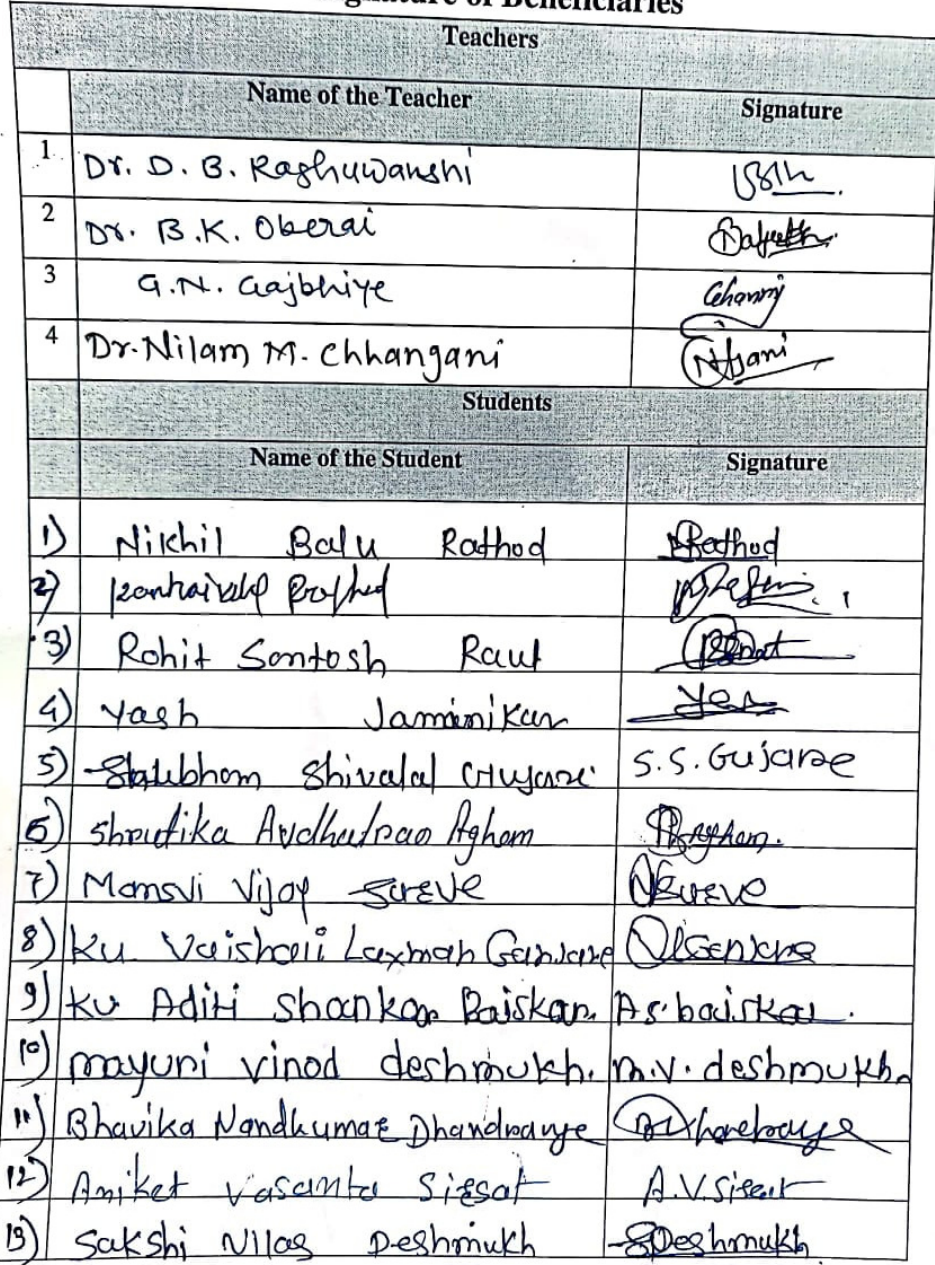 Signature of Beneficiaries
Teachers
Name of the Teacher Signature
1 Dr. D. B. Raghuwanshi
2 Dr. B.K. Oberai
3 G.N. Gajbhiye
4 Dr. Nilam M. Chhangani
Students
Name of the Student Signature
1) Nikhil Balu Rathod Rathod
2)
3) Rohit Santosh Raut
4) Yash Yash
5) Shivalal Gujare S.S. Gujare
6) Shrutika Avdhutrao Agham Agham.
7) Mansvi Vijay Sureve
8) Ku Vaishali Laxman
9) Ku Aditi Shankar Baiskar. A.S. baiskar.
10) mayuri vinod deshmukh. m.v. deshmukh.
11) Bhavika Nandkumar
12) Aniket Vasanta Sirsat A.V. Sirsat
13) Sakshi Vilas Deshmukh SDeshmukh